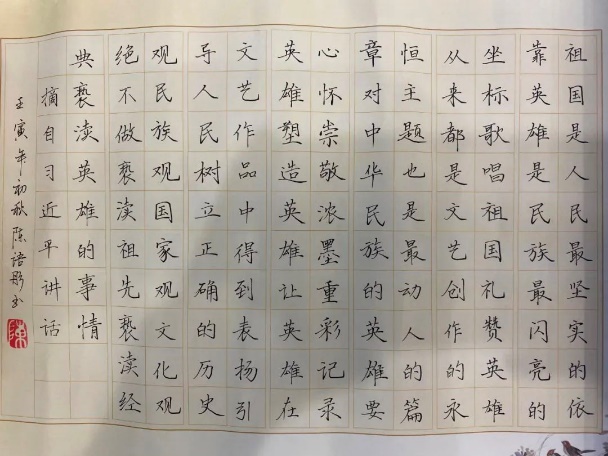 祖国是人民最坚实的依
靠英雄是民族最闪亮的
坐标歌唱祖国礼赞英雄
从来都是文艺创作的永
恒主题也是最动人的篇
章对中华民族的英雄要
心怀崇敬浓墨重彩记录
英雄塑造英雄让英雄在
文艺作品中得到表扬引
导人民树立正确的历史
观民族观国家观文化观
绝不做亵渎祖先亵渎经
典亵渎英雄的事情
摘自习近平讲话
壬寅年初秋陈语彤书
陈